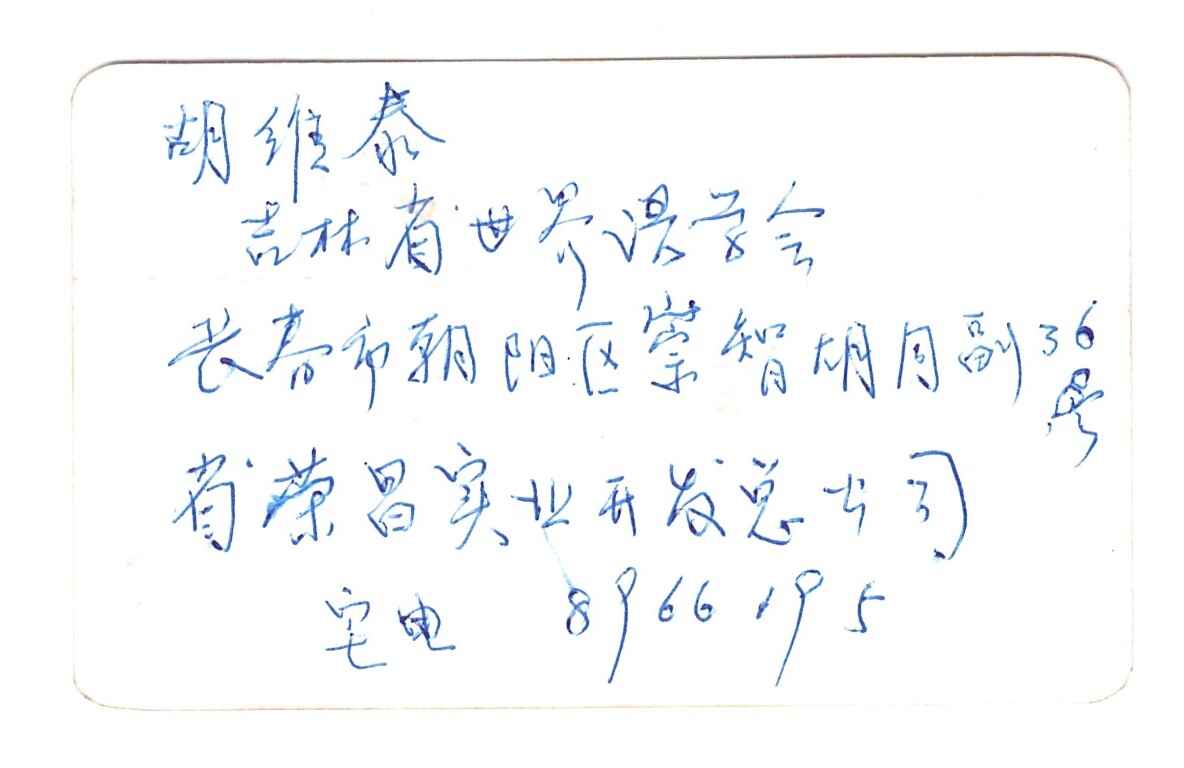 胡维泰
吉林省世界语学会
长春市朝阳区崇智胡同副36号
省荣昌实业开发总公司
宅电 8966195